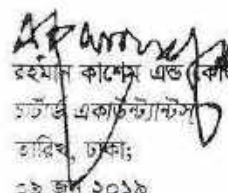 রহমান কাশেম এন্ড কো
চার্টার্ড একাউন্ট্যান্টস্
তারিখ, ঢাকা;
০৯ জুন ২০১৯